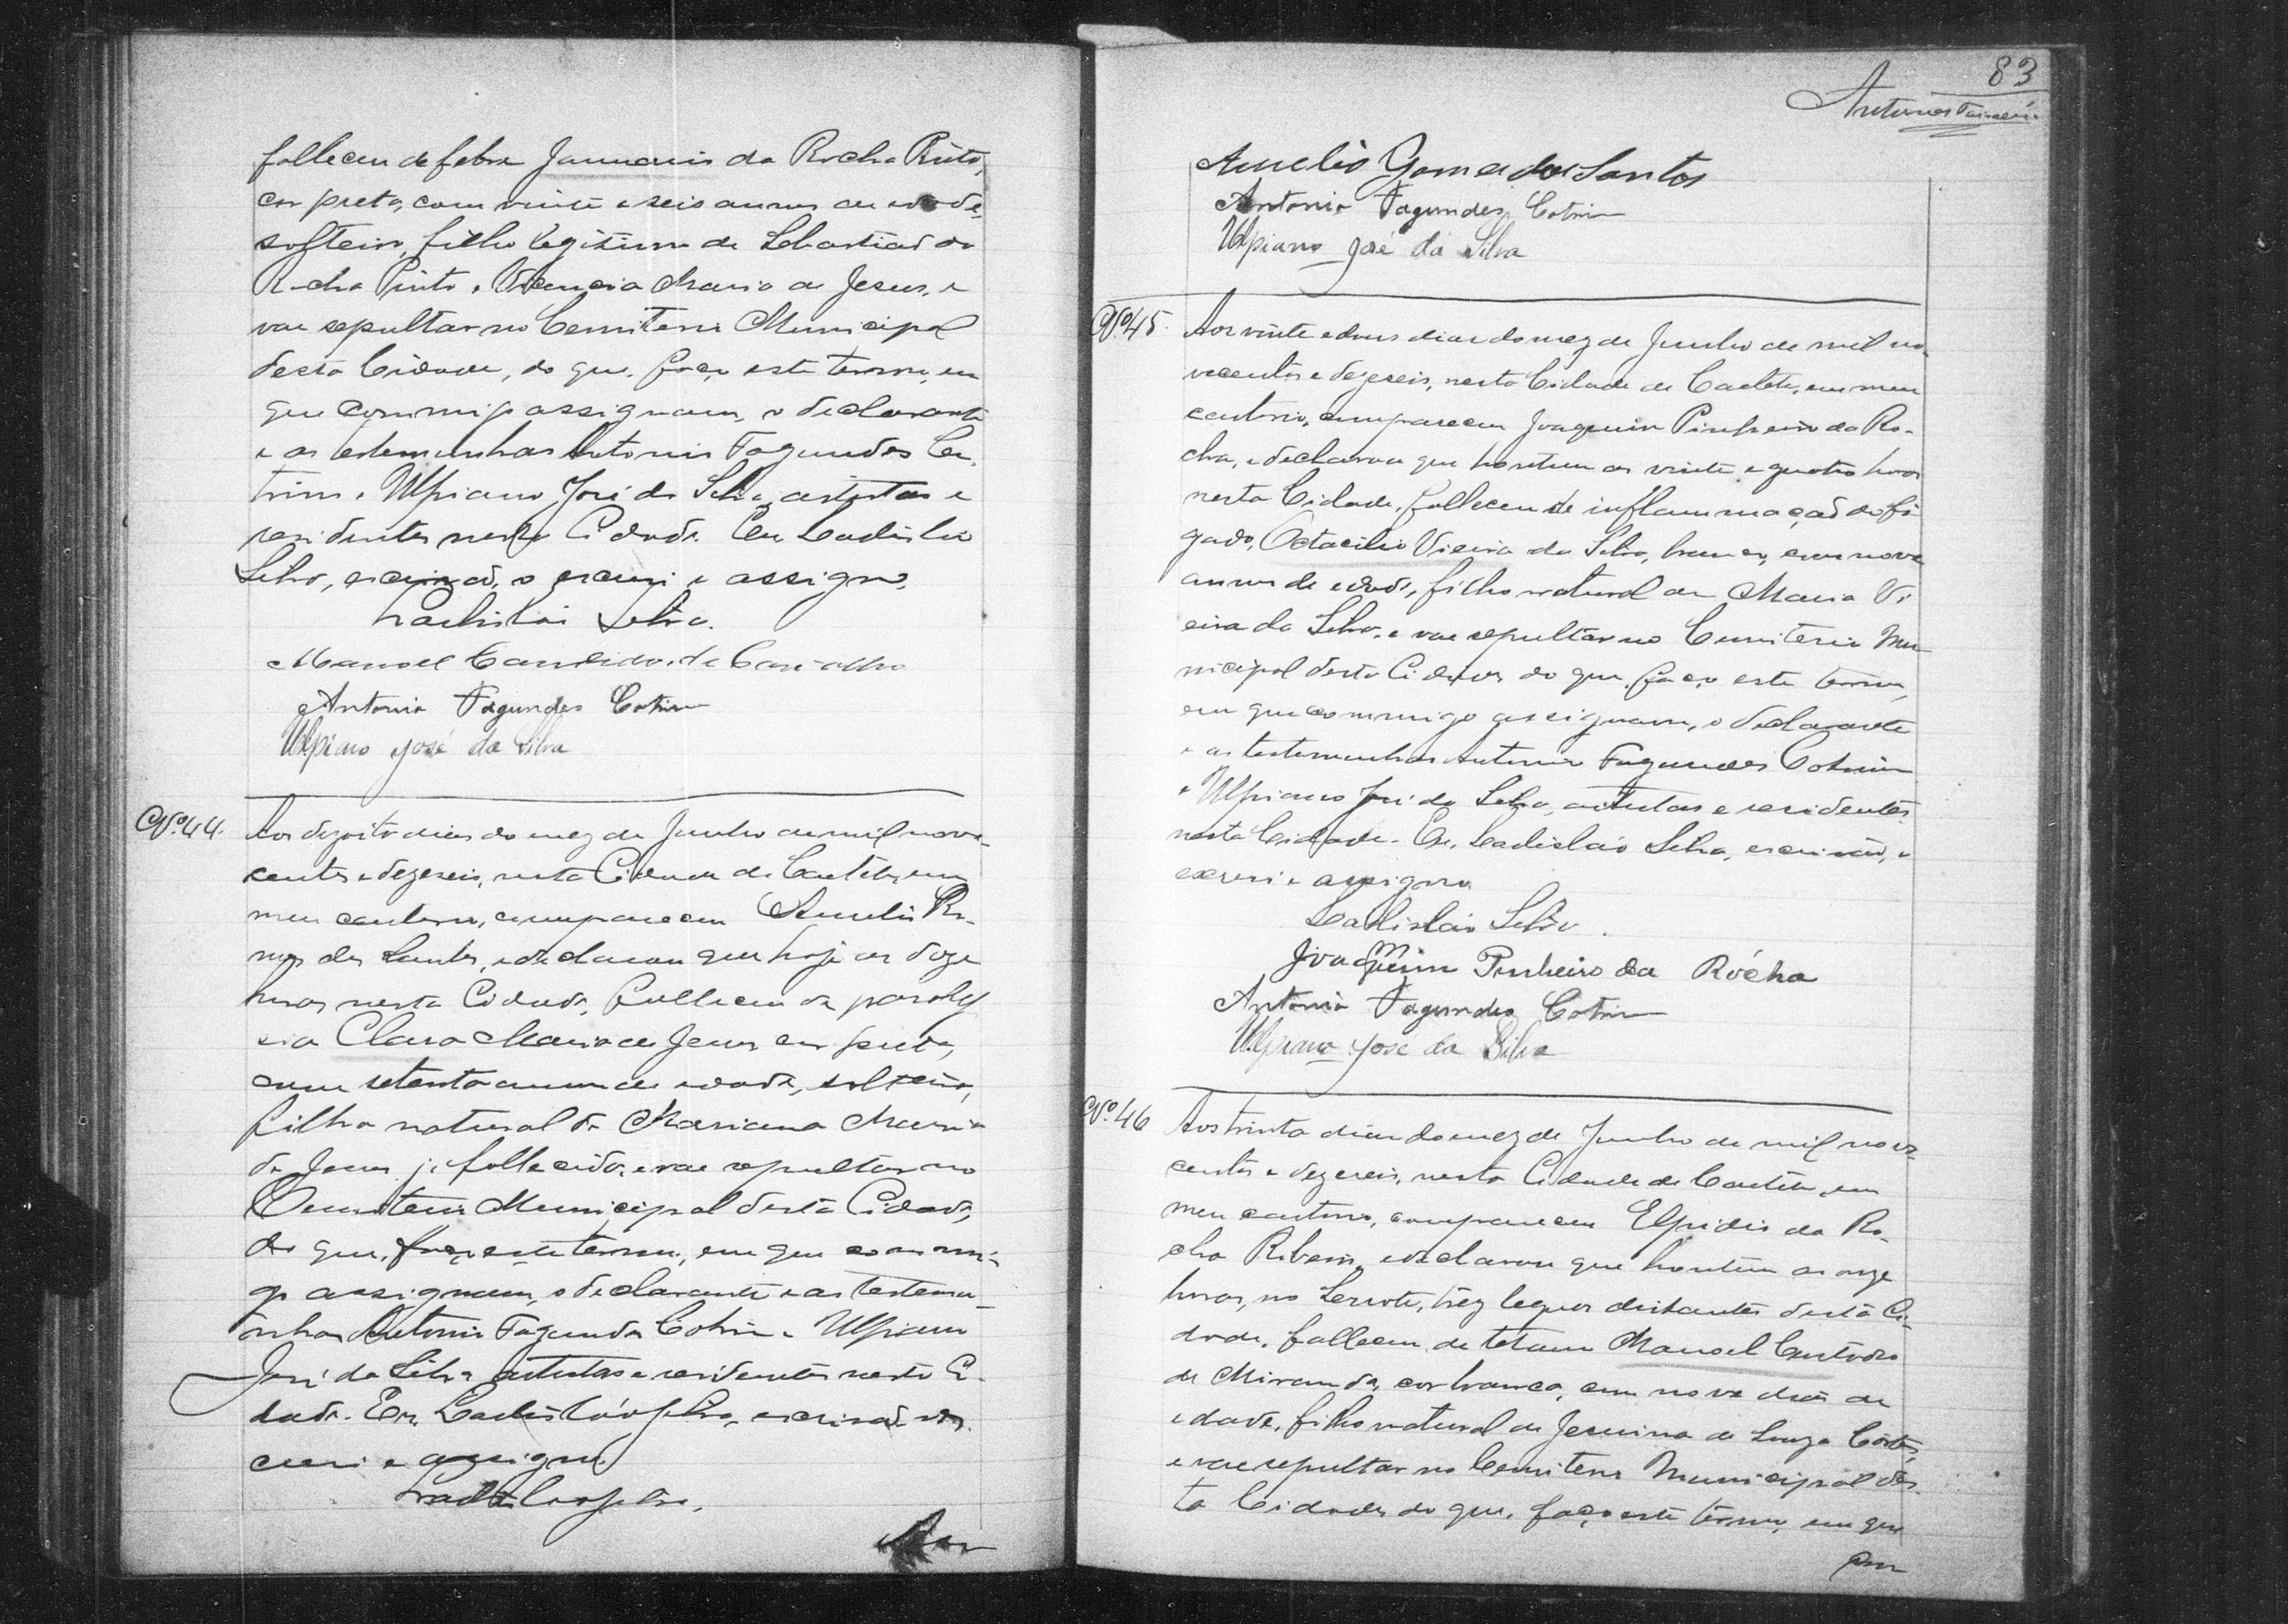 falleceu de febre Januario da Rocha Pinto,
cor preta, com vinte e seis annos de edade,
solteiro, filho legitimo de Sebastião da
Rocha Pinto e Vicencia Maria de Jesus, e
vae sepultar no Cemiterio Municipal
desta Cidade, do que, faço este termo, em
que commigo assignam, o declarante
e as testemunhas Antonio Fagundes Co-
trim e Ulpiano José da Silva, artistas e
residentes nesta Cidade. Eu Ladisláo
Silva, escrivão, o escrevi e assigno.
Ladisláo Silva.
Manoel Candido de Carvalho
Antonio Fagundes Cotrim
Ulpiano José da Silva
Nº 44. Aos dezoito dias do mez de Junho de mil nove-
centos e dezeseis, nesta Cidade de Caeteté, em
meu cartorio, compareceu Aurelio
dos Santos, e declarou que hoje as doze
horas nesta Cidade, falleceu de paraly
sia Clara Maria de Jesus, cor preta,
com setenta annos de edade, solteira,
filha natural de Mariana Maria
de Jesus, já fallecida, e vae sepultar no
Cemiterio Municipal desta Cidade,
do que, faço este termo, em que commi-
go assignam, o declarante e as testemu-
nhas Antonio Fagundes Cotrim e Ulpiano
José da Silva artistas e residentes nesta Ci-
dade. Eu, Ladisláo Silva, escrivão, o es-
crevi e assigno.
Ladisláo Silva.
83
Antunes
Aurelio Gomes dos Santos
Antonio Fagundes Cotrim
Ulpiano José da Silva
Nº 45. Aos vinte e dous dias do mez de Junho de mil no-
vecentos e dezeseis, nesta Cidade de Caeteté, em meu
cartorio, compareceu Joaquim Pinheiro da Ro-
cha, e declarou que hontem as vinte e quatro horas
nesta Cidade, falleceu de inflammação do fi
gado, Octacilio Vieira da Silva, branco, com nove
annos de edade, filho natural de Maria Vi
eira da Silva, e vae sepultar no Cemiterio Mu-
nicipal desta Cidade, do que, faço este termo,
em que commigo assignam, o declarante
e as testemunhas Antonio Fagundes Cotrim
e Ulpiano José da Silva, artistas e residentes
nesta Cidade. Eu, Ladisláo Silva, escrivão, o
escrevi e assigno.
Ladisláo Silva.
Joaquim Pinheiro da Rócha
Antonio Fagundes Cotrim
Ulpiano José da Silva
Nº 46 Aos trinta dias do mez de Junho de mil nove-
centos e dezeseis, nesta Cidade de Caeteté, em
meu cartorio, compareceu Elpidio da Ro-
cha Ribeiro, e declarou que hontem as onze
horas, no Serrote, trez leguas distantes desta Ci-
dade, falleceu de tetano Manoel Custodio
de Miranda, cor branca, com nove dias de
edade, filho natural de Jesuina de Souza Côrtes,
e vae sepultar no Cemiterio Municipal des-
ta Cidade, do que, faço este termo, em que